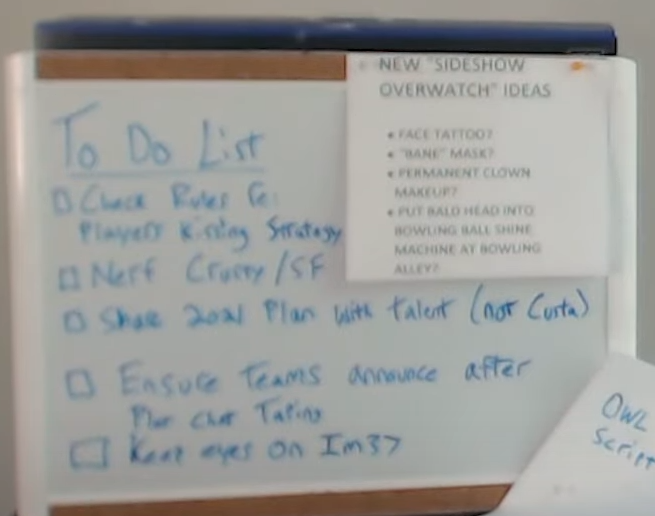 To Do List
□ Check Rules re:
Players Kissing Strategy
□ Nerf Crusty/SF
□ Share 2021 Plan with talent (not Custa)
□ Ensure Teams announce after
Plat Chat Taping
□ Keep eyes on Im37
NEW "SIDESHOW
OVERWATCH" IDEAS
• FACE TATTOO?
• "BANE" MASK?
• PERMANENT CLOWN
MAKEUP?
• PUT BALD HEAD INTO
BOWLING BALL SHINE
MACHINE AT BOWLING
ALLEY?
OWL
Script